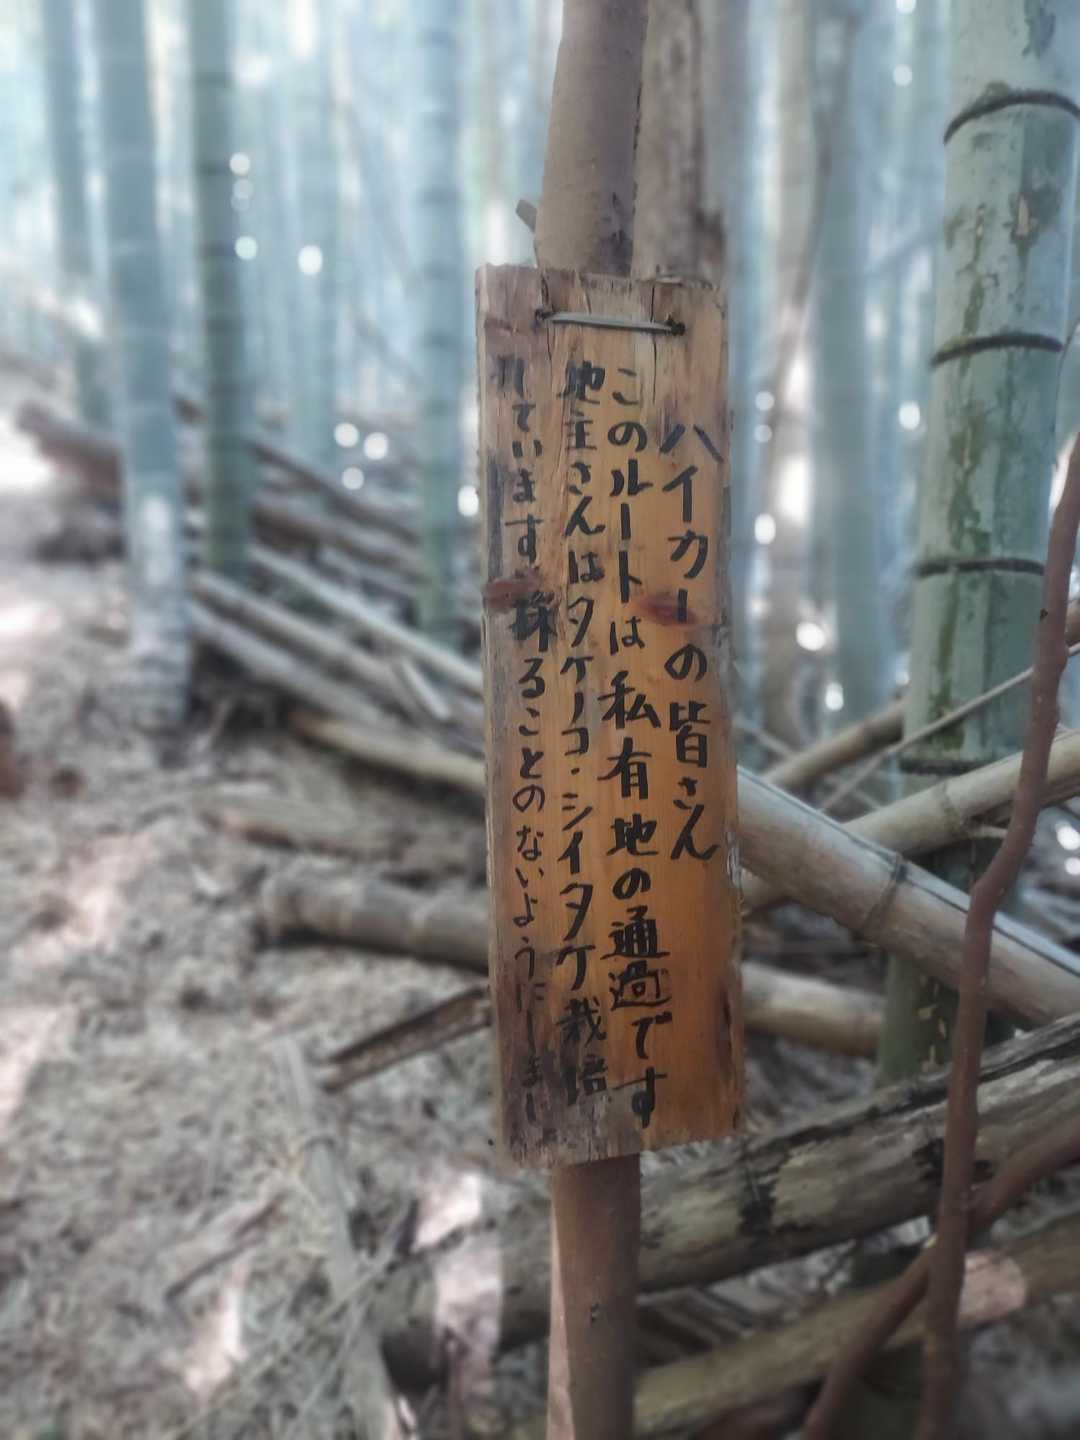 ハイカーの皆さん
このルートは私有地の通過です
地主さんはタケノコ・シイタケ栽培
れています採ることのないようにしまし